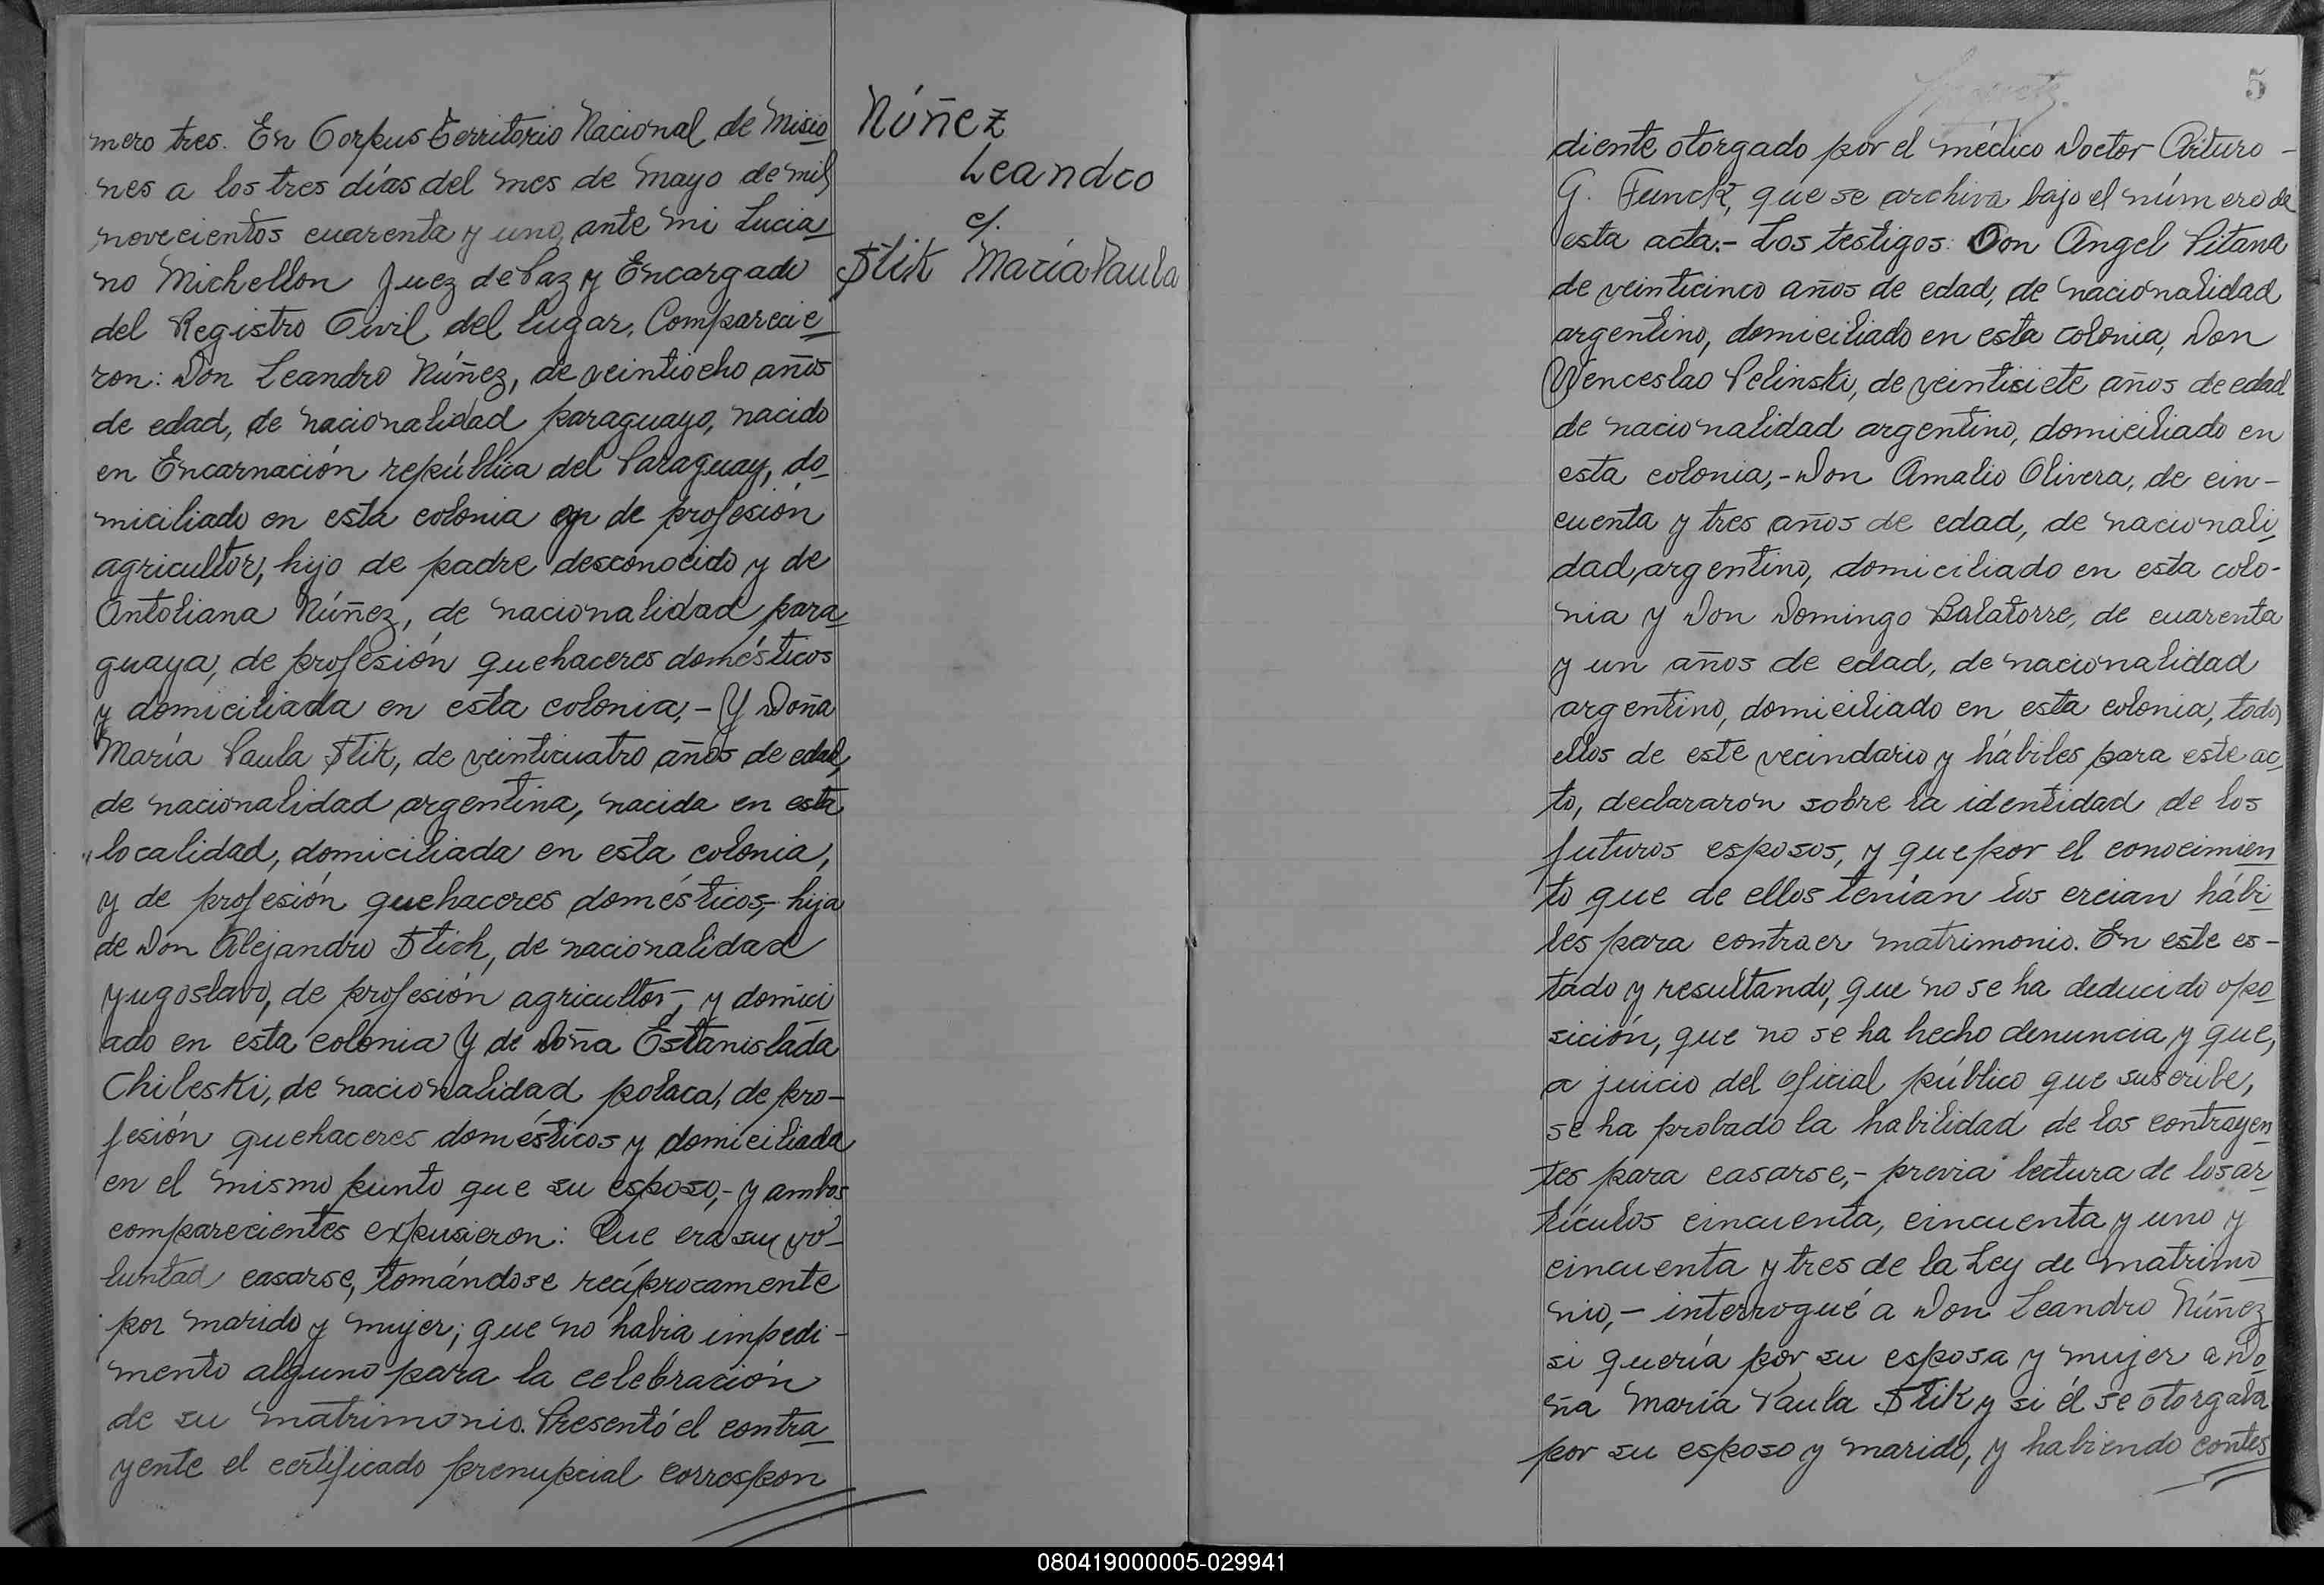 mero tres. En Corpus Territorio Nacional de Misio
nes a los tres días del mes de Mayo de mil
novecientos cuarenta y uno, ante mi Lucia
no Michellon Juez de Paz y Encargado
del Registro Civil del lugar, Comparecie
ron: Don Leandro Núñez, de veintiocho años
de edad, de nacionalidad paraguayo, nacido
en Encarnación república del Paraguay, do
miciliado en esta colonia de profesión
agricultor, hijo de padre desconocido y de
Antoliana Núñez, de nacionalidad para
guaya, de profesión quehaceres domésticos
y domiciliada en esta colonia,- Y Doña
María Paula Stik, de veinticuatro años de edad,
de nacionalidad argentina, nacida en esta
localidad, domiciliada en esta colonia,
y de profesión quehaceres domésticos,- hija
de Don Alejandro Stich, de nacionalidad
yugoslavo, de profesión agricultor, y domici
ado en esta colonia Y de Doña Estanislada
Chileski, de nacionalidad polaca, de pro-
fesión quehaceres domésticos y domiciliada
en el mismo punto que su esposo,- y ambos
comparecientes expusieron: Que era su vo-
luntad casarse, tomándose recíprocamente
por marido y mujer; que no habia impedi-
mento alguno para la celebración
de su matrimonio. Presentó el contra
yente el certificado prenupcial correspon
Núñez
Leandro
c/.
Stik María Paula
5
diente otorgado por el médico Doctor Arturo -
G. Funck, que se archiva bajo el número de
esta acta.- Los testigos: Don Angel Pitana
de veinticinco años de edad, de nacionalidad
argentino, domiciliado en esta colonia, Don
Wenceslao Pelinski, de veintisiete años de edad
de nacionalidad argentino, domiciliado en
esta colonia,- Don Amalio Olivera, de cin-
cuenta y tres años de edad, de nacionali
dad, argentino, domiciliado en esta colo-
nia y Don Domingo Balatorre, de cuarenta
y un años de edad, de nacionalidad
argentino, domiciliado en esta colonia, todos
ellos de este vecindario y hábiles para este ac
to, declararon sobre la identidad de los
futuros esposos, y que por el conocimien
to que de ellos tenían los creian hábi
les para contraer matrimonio. En este es-
tado y resultando, que no se ha deducido opo
sición, que no se ha hecho denuncia y que,
a juicio del oficial público que suscribe,
se ha probado la habilidad de los contrayen
tes para casarse,- previa lectura de los ar
tículos cincuenta, cincuenta y uno y
cincuenta y tres de la Ley de matrimo
nio,- interrogué a Don Leandro Núñez
si quería por su esposa y mujer a Do
ña María Paula Stik y si él se otorgaba
por su esposo y marido, y habiendo contes
080419000005-029941